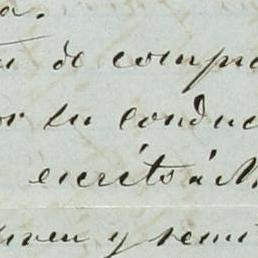 a.
de compra
or su conduc
escrits á M
y remi